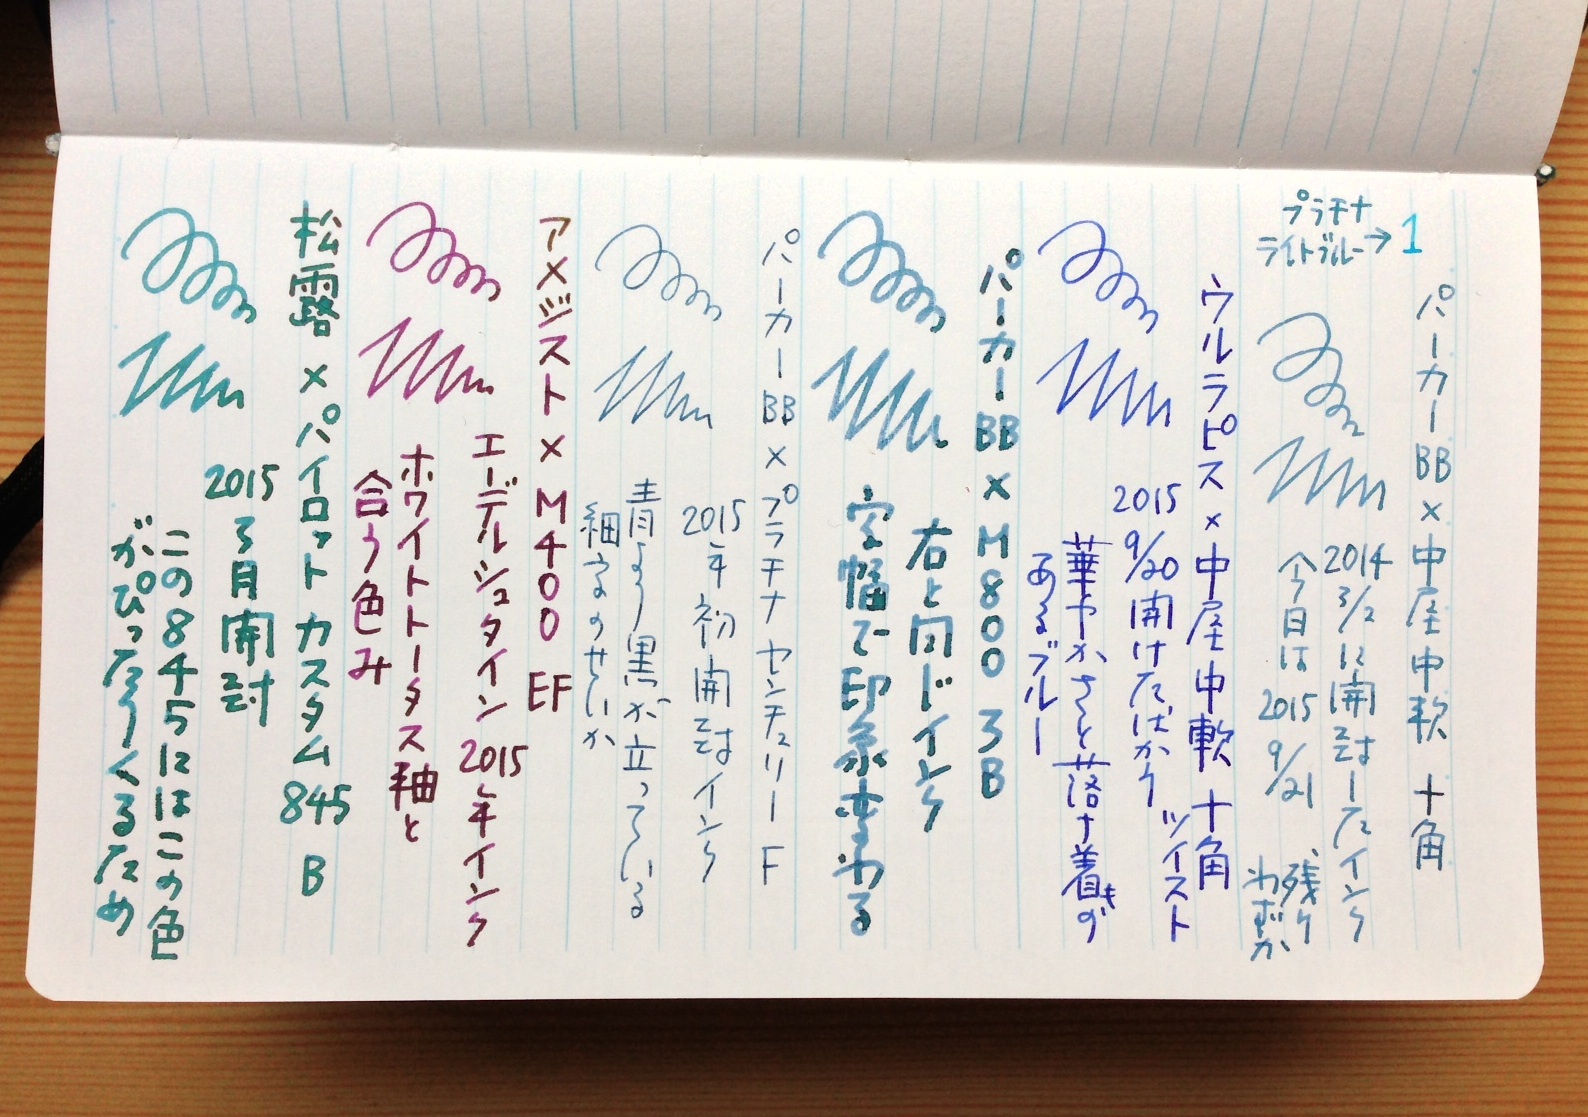 プラチナ
ライトブルー→1
パーカーBB×中屋中軟 十角
2014 3/2に開封したインク
今日は 2015 9/21 残り
わずか
ウルラピス×中屋中軟 十角
ツイスト
2015 9/20開けたばかり
華やかさと落ち着きが
あるブルー
パーカーBB×M800 3B
右と同じインク
字幅で印象変わる
パーカーBB×プラチナセンチュリー F
2015年初開封インク
青より黒が立っている
細字のせいか
アメジスト×M400 EF
エーデルシュタイン2015年インク
ホワイトトータス軸と
合う色み
松露×パイロットカスタム845 B
2015 3月開封
この845にはこの色
がぴったりくるため